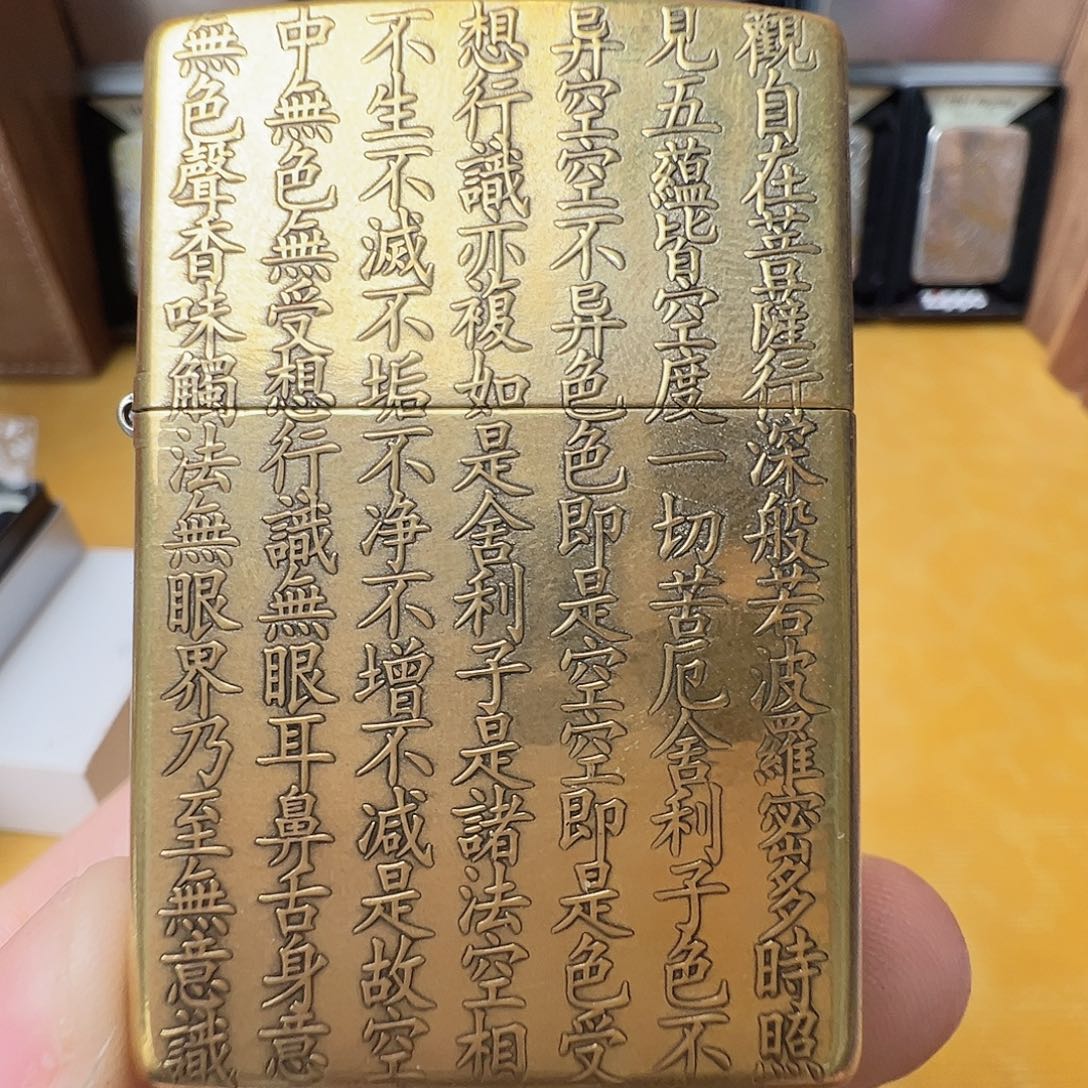 觀自在菩薩行深般若波羅密多時照
見五蘊皆空度一切苦厄舍利子色不
异空空不异色色即是空空即是色受
想行識亦複如是舍利子是諸法空相
不生不滅不垢不净不增不减是故空
中無色無受想行識無眼耳鼻舌身意
無色聲香味觸法無眼界乃至無意識